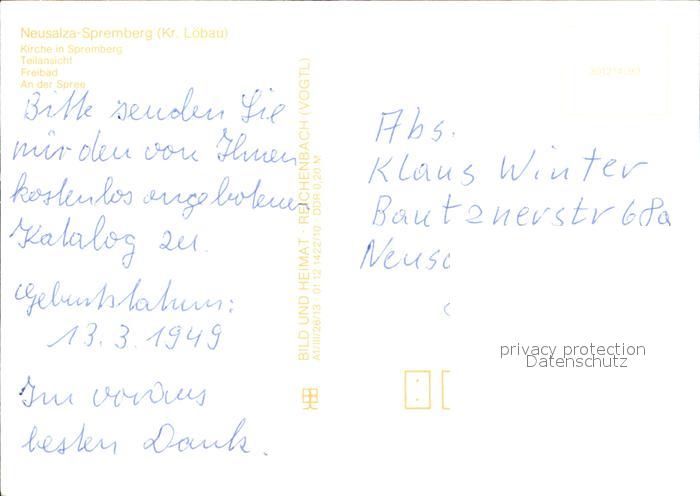 Neusalza-Spremberg (Kr. Löbau)
Kirche in Spremberg
Teilansicht
Freibad
An der Spree
Bitte senden Sie
mir den von Ihnen
kostenlos angebotenen
Katalog zu.
Geburtsdatum:
13.3.1949
Im voraus
besten Dank.
BILD UND HEIMAT · REICHENBACH (VOGTL)
A1/III/26/13 · 01 12 1422/10 · DDR 0,20 M
Abs.
Klaus Winter
Bautznerstr 68a
Neusa
privacy protection
Datenschutz